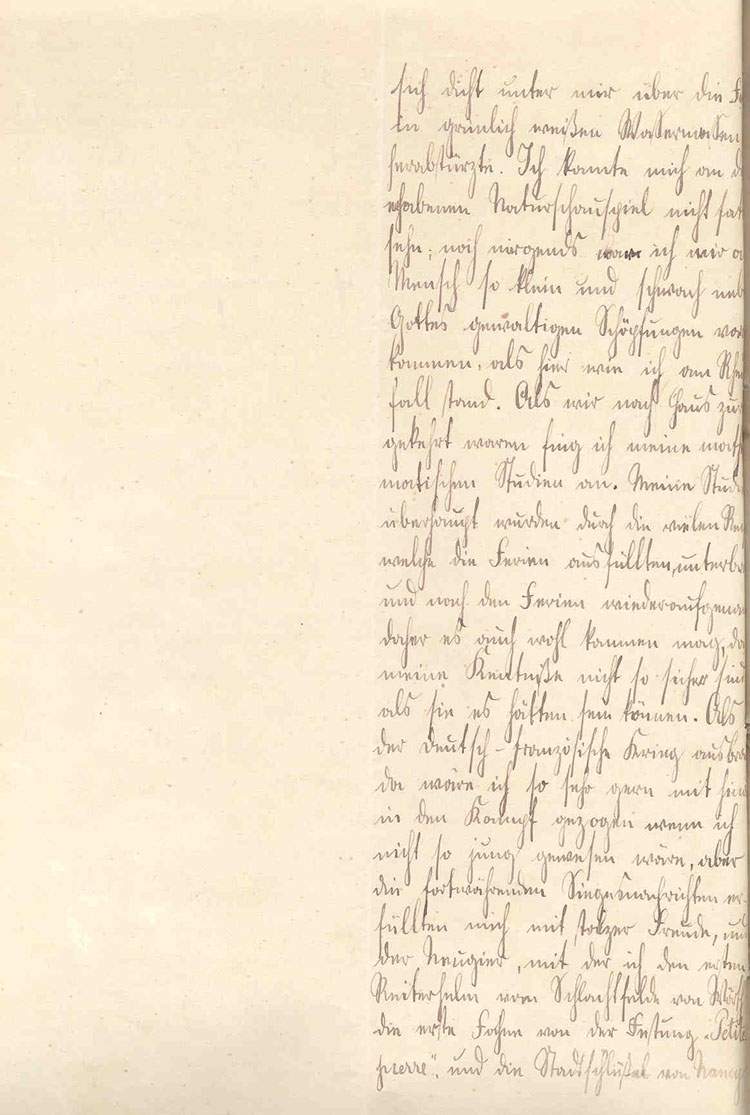 sich dicht unter mir über die Fe
in grünlich weißen Wassermassen
herabstürzte. Ich konnte mich an d
erhabenen Naturschauspiel nicht sat
sehn; noch nirgends war ich mir a
Mensch so klein und schwach neb
Gottes gewaltigen Schöpfungen vor
kommen, als hier wie ich am Rhei
fall stand. Als wir nach Haus zur
gekehrt waren fing ich meine math
matischen Studien an. Meine Stud
überhaupt wurden durch die vielen Rei
welche die Ferien ausfüllten, unterbr
und nach den Ferien wiederaufgenom
daher es auch wohl kommen mag, da
meine Kentniße nicht so sicher sind
als sie es hätten sein können. Als
der deutsch-französische Krieg ausbra
da wäre ich so sehr gern mit hin
in den Kampf gezogen wenn ich
nicht so jung gewesen wäre, aber
die fortwährenden Siegesnachrichten er-
füllten mich mit stolzer Freude, und
der Neugier, mit der ich den ersten
Reiterhelm vom Schlachtfelde von Wörth
die erste Fahne von der Festung „Petite
pierre", und die Stadtschlüßel von Nancy